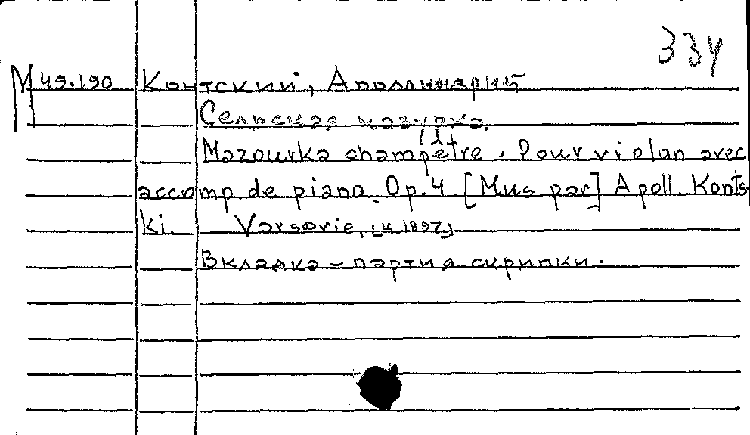 334
М 49.190 Контский, Аполлинарий
Сельская мазурка.
Mazourka champêtre. Pour violon avec
accomp de piano. Op. 4 [Mus par] Apoll. Konts
ki. Varsovie,
Вкладка – партия скрипки.